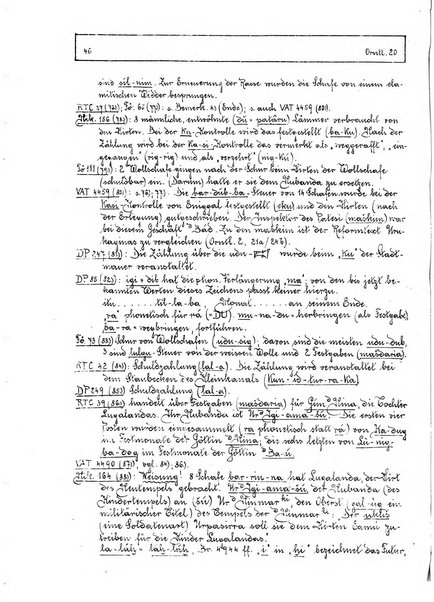 46 Orntl. 20
sind sil-nim. Zur Erneuerung der Rasse wurden die Schafe von einem ela-
mitischen Widder besprungen.
RTC 37 (76); Fö. 65 (77): s. Bemerk. (Ende); s. auch VAT 4459 (88).
186 (78): 8 männliche, entwöhnte Lämmer verbraucht von
den Hirten. Bei der Ka-Kontrolle wird das festgestellt (ba-Ku). Nach der
Zählung wird bei der Ka-si-Kontrolle das vermerkt als „weggerafft", ein-
gegangen (rig-rig) und als „verzehrt" (nig-Kú).
Fö 111 (79): 2 Wollschafe gingen nach der Schur beim Hirten der Wollschafe
(schuldbar) ein. (Darum) hatte er sie dem Nubanda zu ersetzen.
VAT 4459 (81): s. 76; 77): Die bar-dib-ba-Steuer von 14 Schafen wurde bei der
Kasi-Kontrolle von Eniggal festgestellt (eku) und den Hirten (nach
der Erlegung) gutgeschrieben. Der Inspektor des Patesi (maškim) war
bei diesem Geschäft Zeuge. Zu den maškim ist der Reformtext Uru-
kaginas zu vergleichen (Orntl. 2, 21a/24b).
DP 247 (81): Die Zählung über die udu- wurde beim „Ku" der Stadt-
mauer veranstaltet.
DP 88 (82): igi + dib hat die phon. Verlängerung „ma"; von den bis jetzt be-
kannten Werten dieses Zeichens passt keiner hierzu.
itu...... til-la-ba, Monat...... an seinem Ende.
„ra" phonetisch für rá (=DU) mu-na-du = herbringen (als Festgabe)
ba-ra = wegbringen, fortführen.
Fö 73 (83): Schur von Wollschafen (udu-sig); davon sind die meisten udu-dub,
3 sind Steuer von der weissen Wolle und 2 Festgaben (mašdaria).
RTC 42 (84): Schuldzahlung (lal-a). Die Zählung wird veranstaltet bei
dem Staubecken des Kleinkanals
DP 249 (85): Schuldzahlung (lal-a).
RTC 39 (86): handelt über Festgaben (mašdaria) für Gim die Tochter
Lugalandas. Ihr Nubanda ist Ur-d Igi-ama-šù. Die ersten vier
Posten wurden eingesammelt (ra phonetisch statt rá) von
im Festmonate der Göttin die sechs letzten von
im Festmonate der Göttin d Ba-ú.
VAT 4490 (87), vgl. 84; 86).
164 (88): 8 Schafe bar-rin-na hat Lugalanda, der Wirt
des gebracht. Ur-d Igi-ama-šù, des Nubanda (des
Kindertempels) an (sü) Ur-d Ninmar ki den Obersten (gal-ug ein
militärischer Titel) des Tempels der d Ninmar ki. Der uktin
(eine Soldatenart) Urpasirra soll sie dem Hirten Lamu zu-
treiben für die Kinder Lugalandas.
la-láḫ = laḫ-láḫ, Br. No 4944 ff. „i" in „ḫi" bezeichnet das Futur.